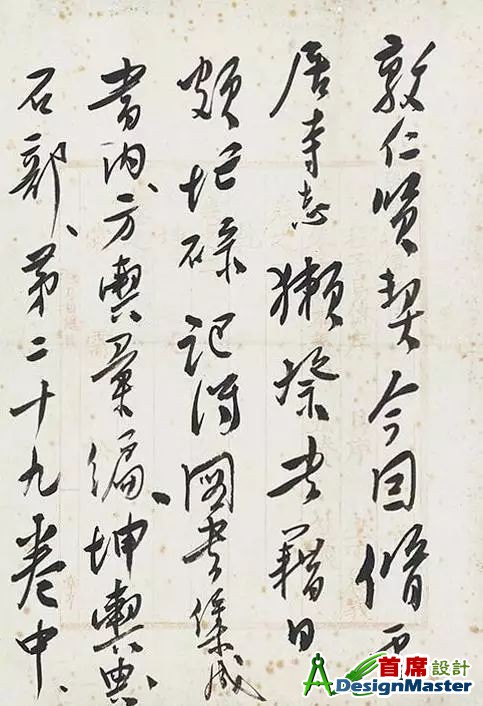 敦仁賢契今因脩雲
居寺志獺祭書籍日
頗忙碌記得圖書集成
書內、方輿彙編、坤輿典、
石部、第二十九卷中、
首席設計
ADesignMaster